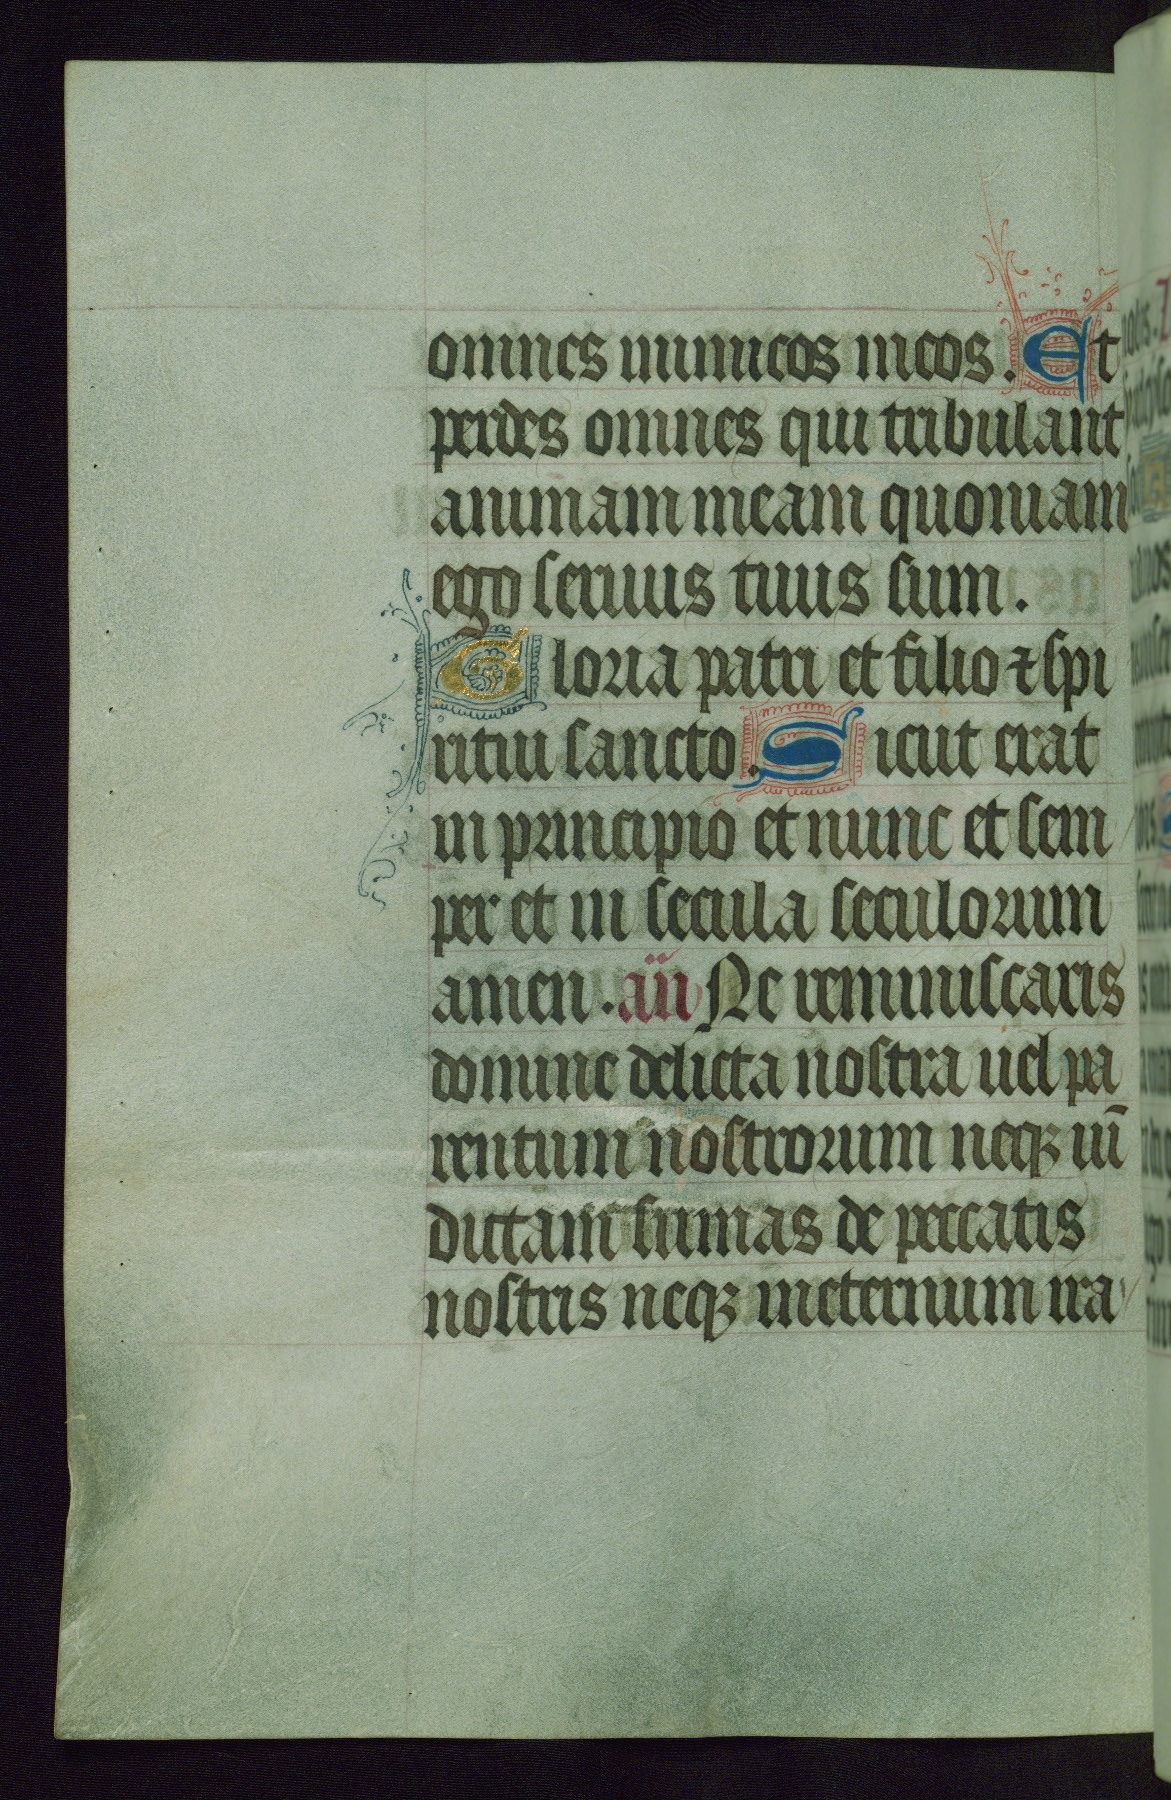 omnes inimicos meos. Et
perdes omnes qui tribulant
animam meam quoniam
ego seruus tuus sum.
Gloria patri et filio ⁊ spi
ritui sancto. Sicut erat
in principio et nunc et sem
per et in secula seculorum
amen. an̄ Ne reminiscaris
domine delicta nostra uel pa
rentum nostrorum neqꝫ uī
dictam sumas de peccatis
nostris neqꝫ ineternum ira